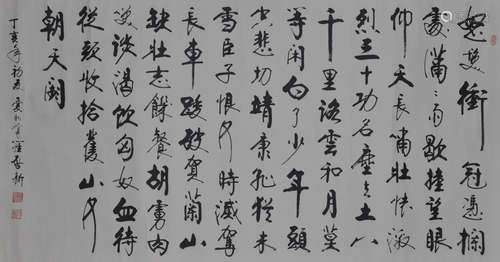 怒髮衝冠憑欄
處瀟々雨歇擡望眼
仰天長嘯壯懷激
烈三十功名塵與土八
千里路雲和月莫
等閑白了少年頭
空悲切靖康恥猶未
雪臣子恨何時滅駕
長車踏破賀蘭山
缺壯志飢餐胡虜肉
笑談渴飲匈奴血待
從頭收拾舊山河
朝天闕
丁亥年初夏